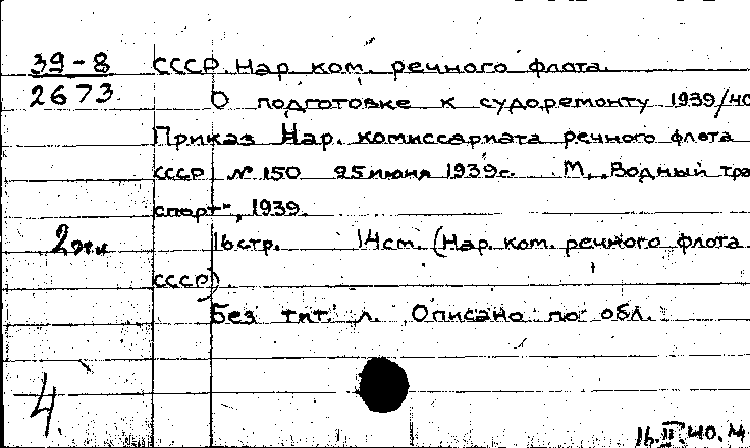 39-8 СССР. Нар. ком. речного флота.
2673 О подготовке к судоремонту 1939/40
Приказ Нар. комиссариата речного флота
СССР № 150 25 июня 1939г. М., „Водный тра
спорт", 1939.
2 экз 16 стр. 14 см. (Нар. ком. речного флота
СССР).
Без тит. л. Описано по обл.
4.
16 II 40. М